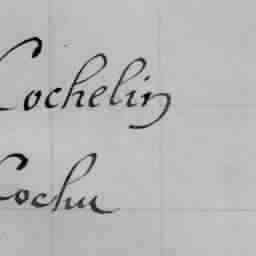 Cochelin
Cochu